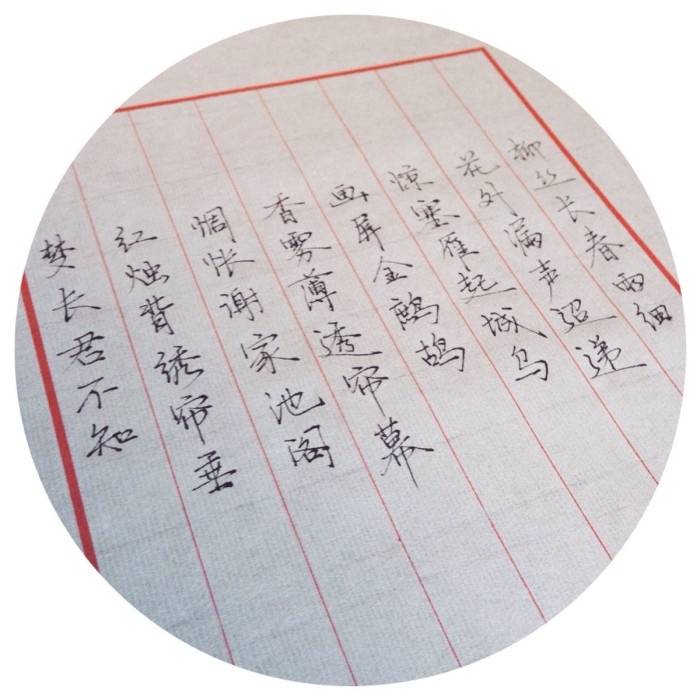 柳丝长春雨细
花外漏声迢递
惊塞雁起城乌
画屏金鹧鸪
香雾薄透帘幕
惆怅谢家池阁
红烛背绣帘垂
梦长君不知